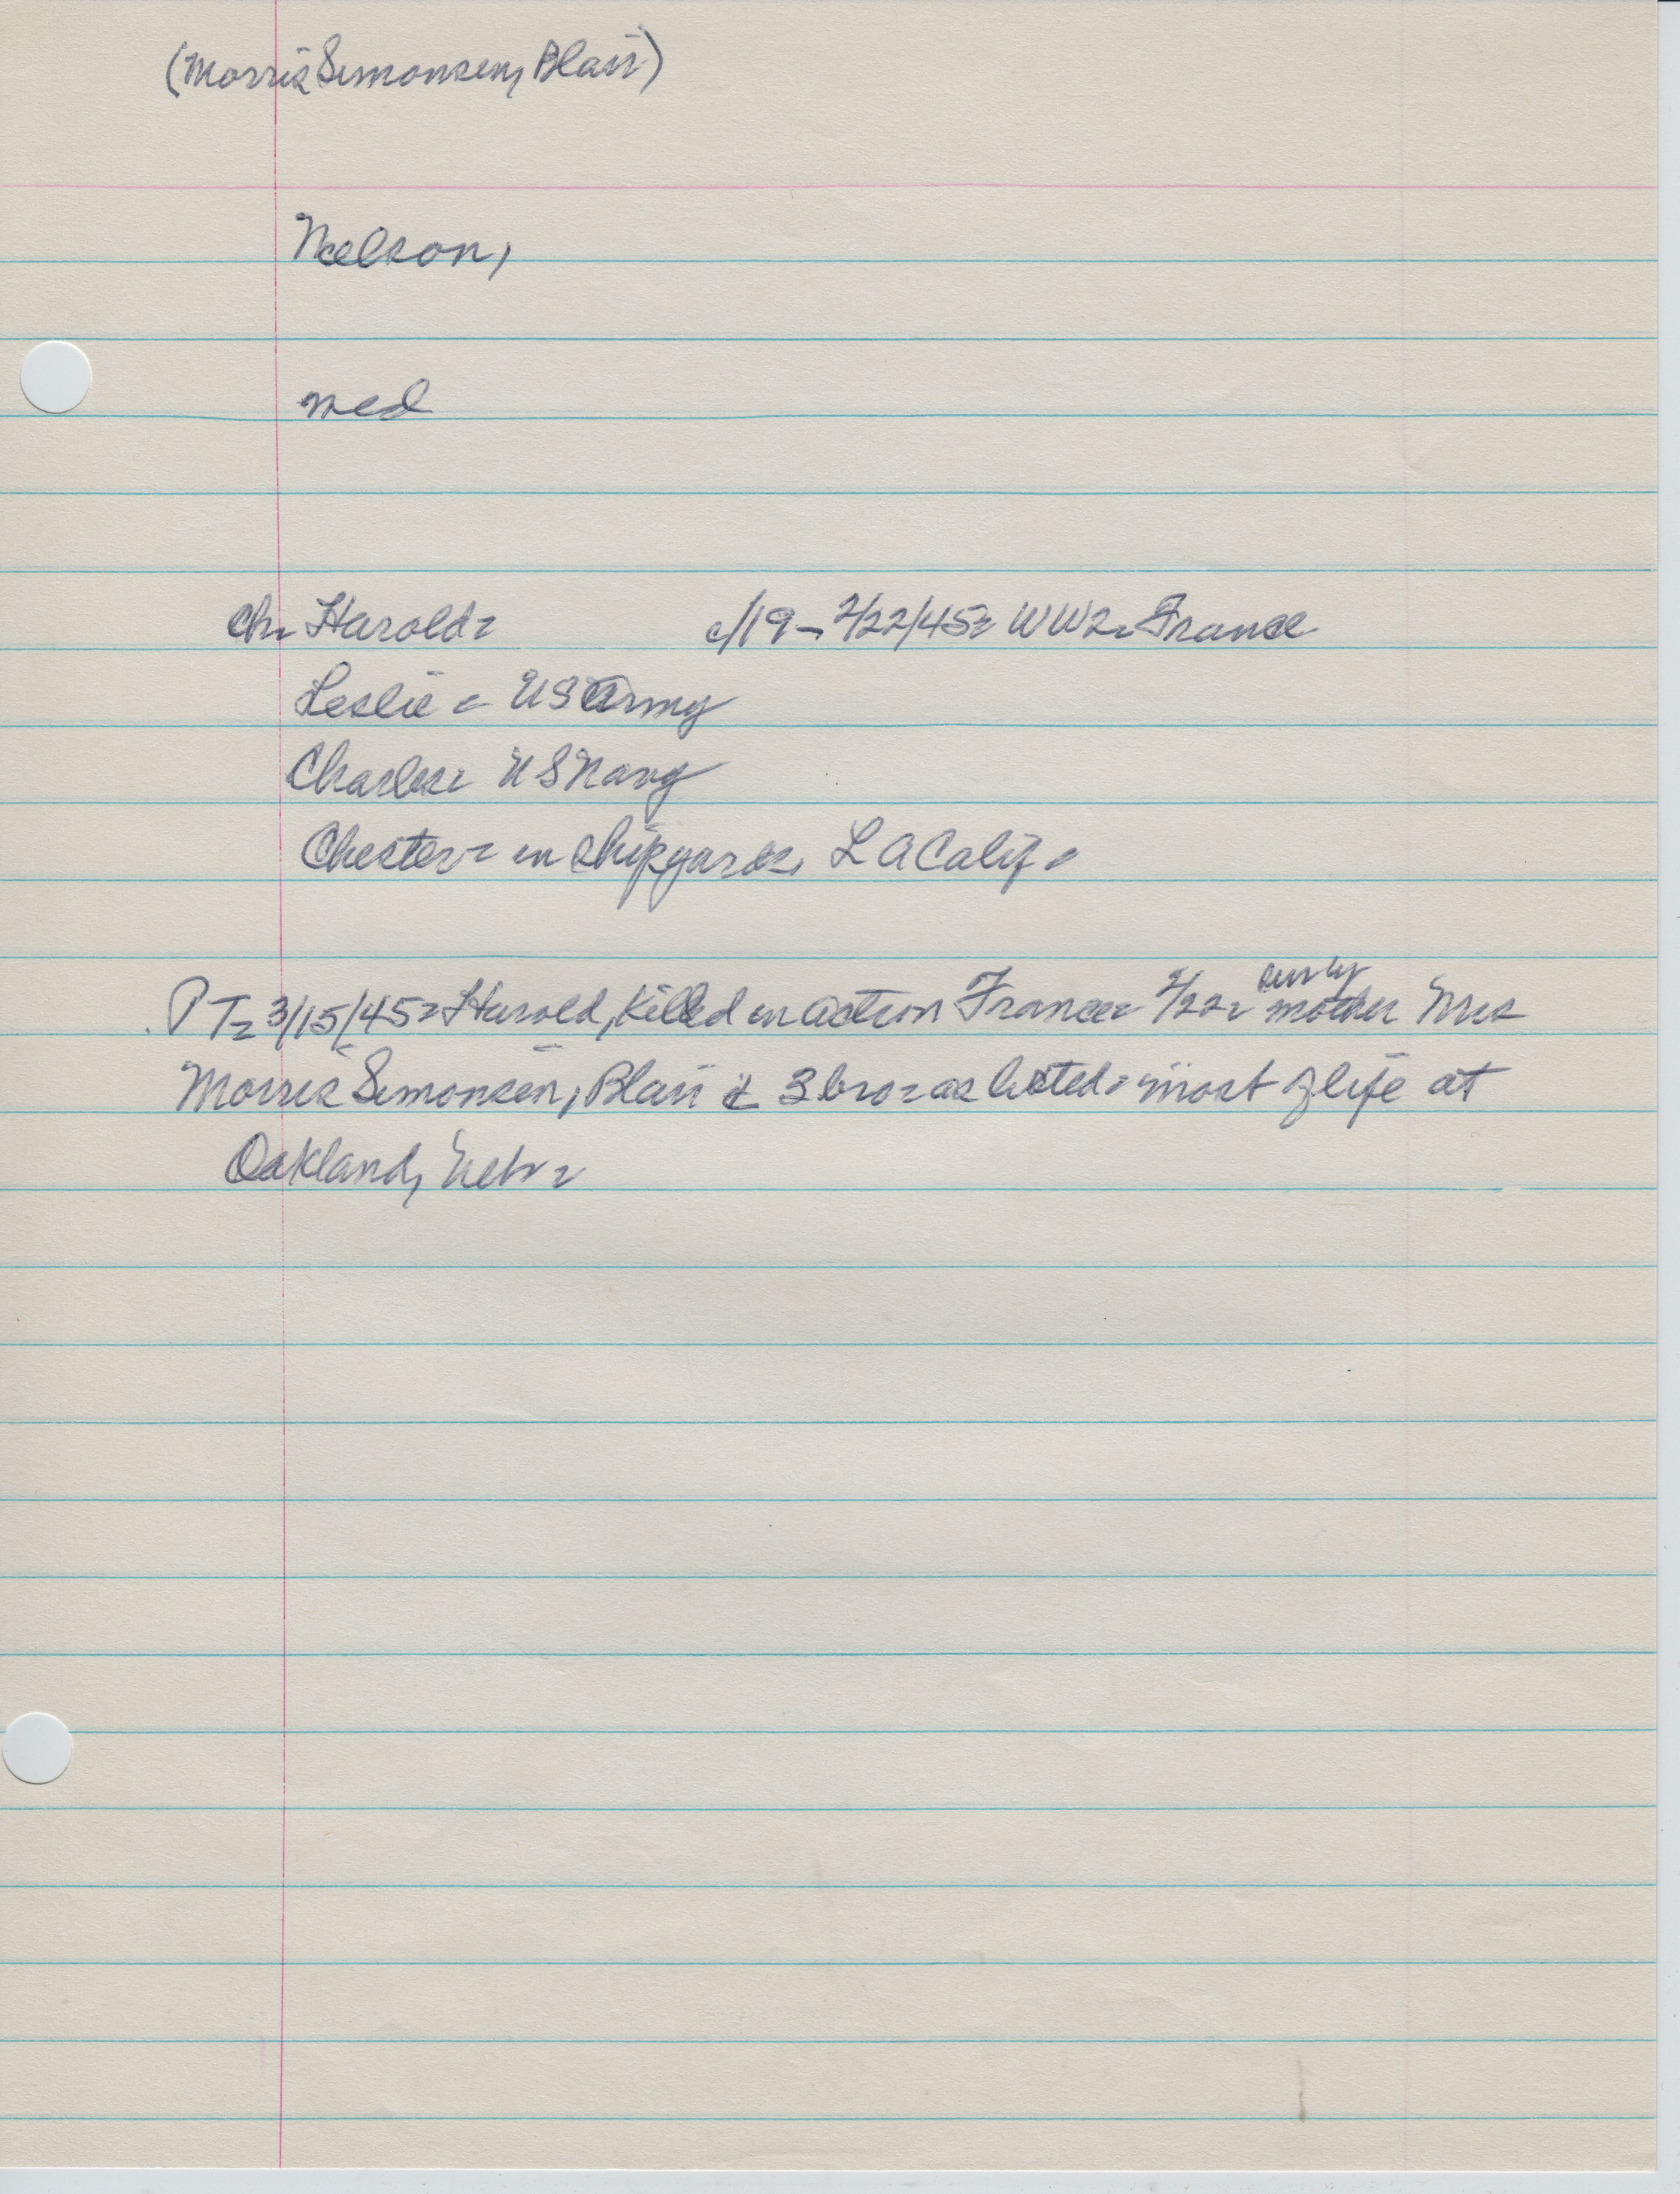 (Morris Simonsen, Blair)
Nelson,
med
Ch- Harold- c/19 - 2/22/45- WW2- France
Leslie - US Army
Charles- US Navy
Chester- in shipyards, L A Calif -
surv by
PT- 3/15/45- Harold, killed in action France- 2/22- mother Mrs
Morris Simonsen, Blair & 3 bro- as listed- most of life at
Oakland, Nebr-